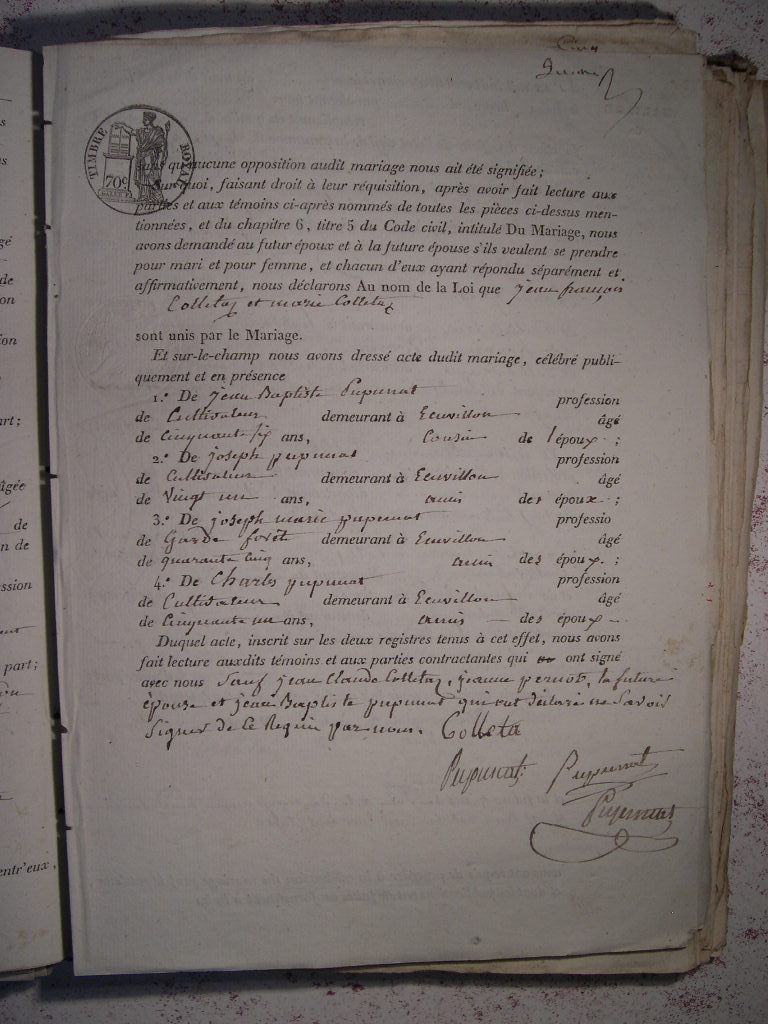 Cinq
TIMBRE ROYAL
70c
sans qu'aucune opposition audit mariage nous ait été signifiée;
Sur quoi, faisant droit à leur réquisition, après avoir fait lecture aux
parties et aux témoins ci-après nommés de toutes les pièces ci-dessus men-
tionnées, et du chapitre 6, titre 5 du Code civil, intitulé Du Mariage, nous
avons demandé au futur époux et à la future épouse s'ils veulent se prendre
pour mari et pour femme, et chacun d'eux ayant répondu séparément et
affirmativement, nous déclarons Au nom de la Loi que jean françois
Colletaz et marie Colletaz
sont unis par le Mariage.
Et sur-le-champ nous avons dressé acte dudit mariage, célébré publi-
quement et en présence
1.° De jean Baptiste Pupunat profession
de Cultivateur demeurant à Echvillon âgé
de Cinquante six ans, Cousin de l'époux;
2.° De joseph pupunat profession
de Cultivateur demeurant à Echvillon âgé
de Vingt un ans, amis des époux;
3.° De joseph marie pupunat professio
de Garde forêt demeurant à Echvillon âgé
de quarante cinq ans, amis des époux;
4.° De Charles pupunat profession
de Cultivateur demeurant à Echvillon âgé
de Cinquante un ans, amis des époux
Duquel acte, inscrit sur les deux registres tenus à cet effet, nous avons
fait lecture auxdits témoins et aux parties contractantes qui ont signé
avec nous Sauf jean Claude Colletaz, jeanne pernot, la future
épouse et jean Baptiste pupunat qui ont déclaré ne Savoir
Signer de Ce Requis par nous. Colleta
Pupunat Pupunat
Pupunat
gé
de
ion
ion
art;
âgée
de
n de
ession
part;
entr'eux,